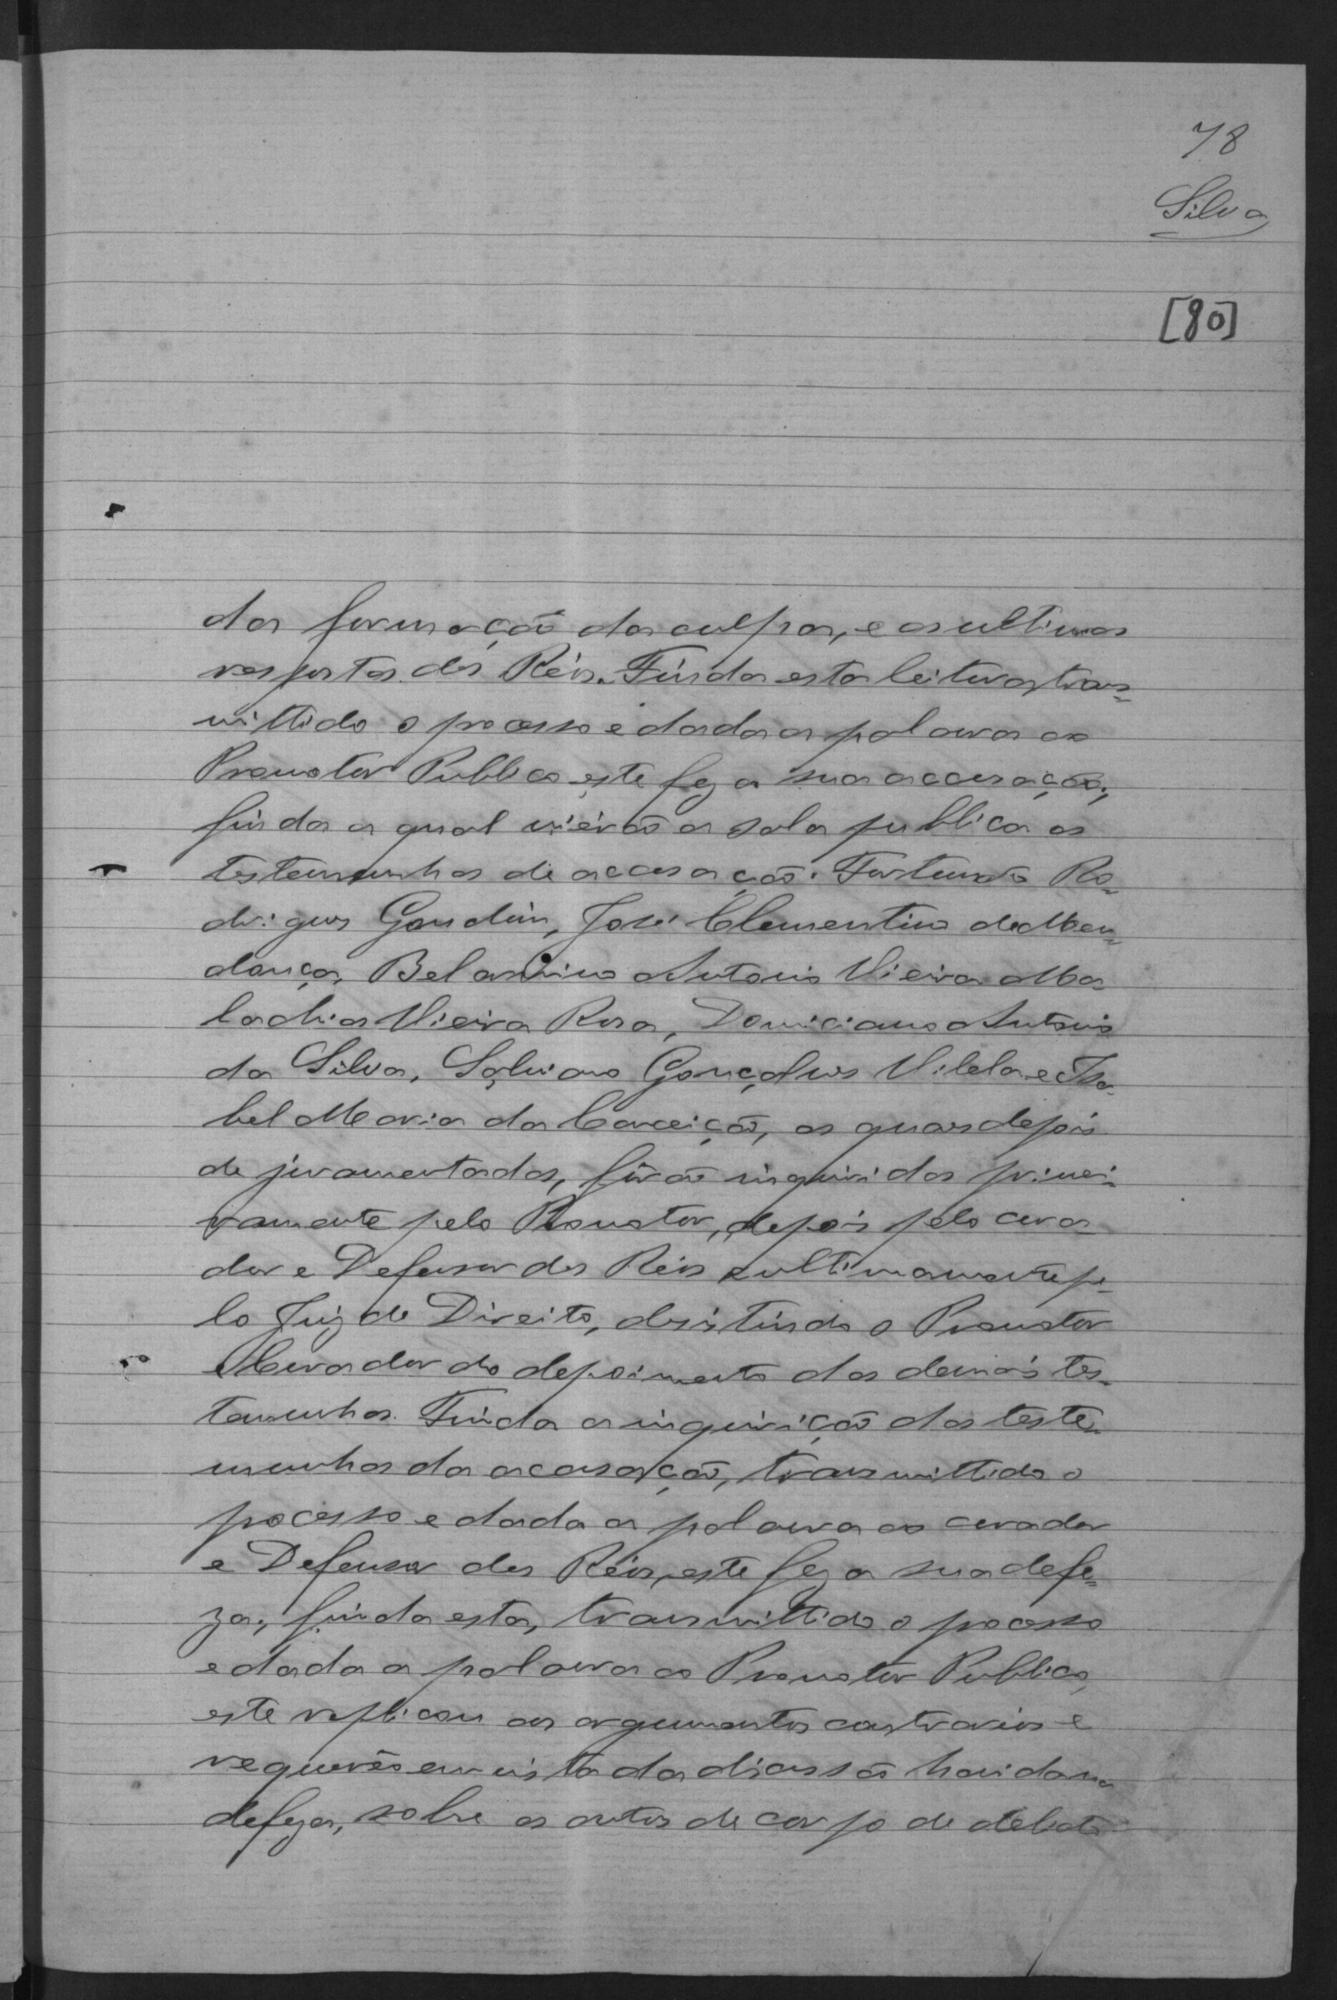 78
Silva
[80]
da formação da culpa, e as ultimas
respostas dos Réis. Finda esta leitura, trans=
mittido o processo e dada a palavra ao
Promotor Publico este fez a sua accusação;
finda a qual vierão a sala publica as
testemunhas de accusação. Fortunato Ro=
drigues Gondim, José Clementino de Men=
donça, Belarmino Antonio Vieira, Ma=
lachias Vieira Rosa, Domiciano Antonio
da Silva, Salviano Gonçalves Vilela e Isa=
bel Maria da Conceição, as quaes depois
de juramentadas, forão inquiridas primei=
ramente pelo Promotor, depois pelo cura=
dor e Defensor dos Réis e ultimamente pe=
lo Juiz de Direito, desistindo o Promotor
e Curador do depoimento das demais tes=
temunhas. Finda a inquirição das teste=
munhas da accusação, transmittido o
processo e dada a palavra ao curador
e Defensor dos Réis, este fez a sua defe=
za; finda esta, transmittido o processo
e dada a palavra ao Promotor Publico,
este replicou aos argumentos contrarios e
requereo em vista da discussão havida na
defeza, sobre os autos de corpo de delicto